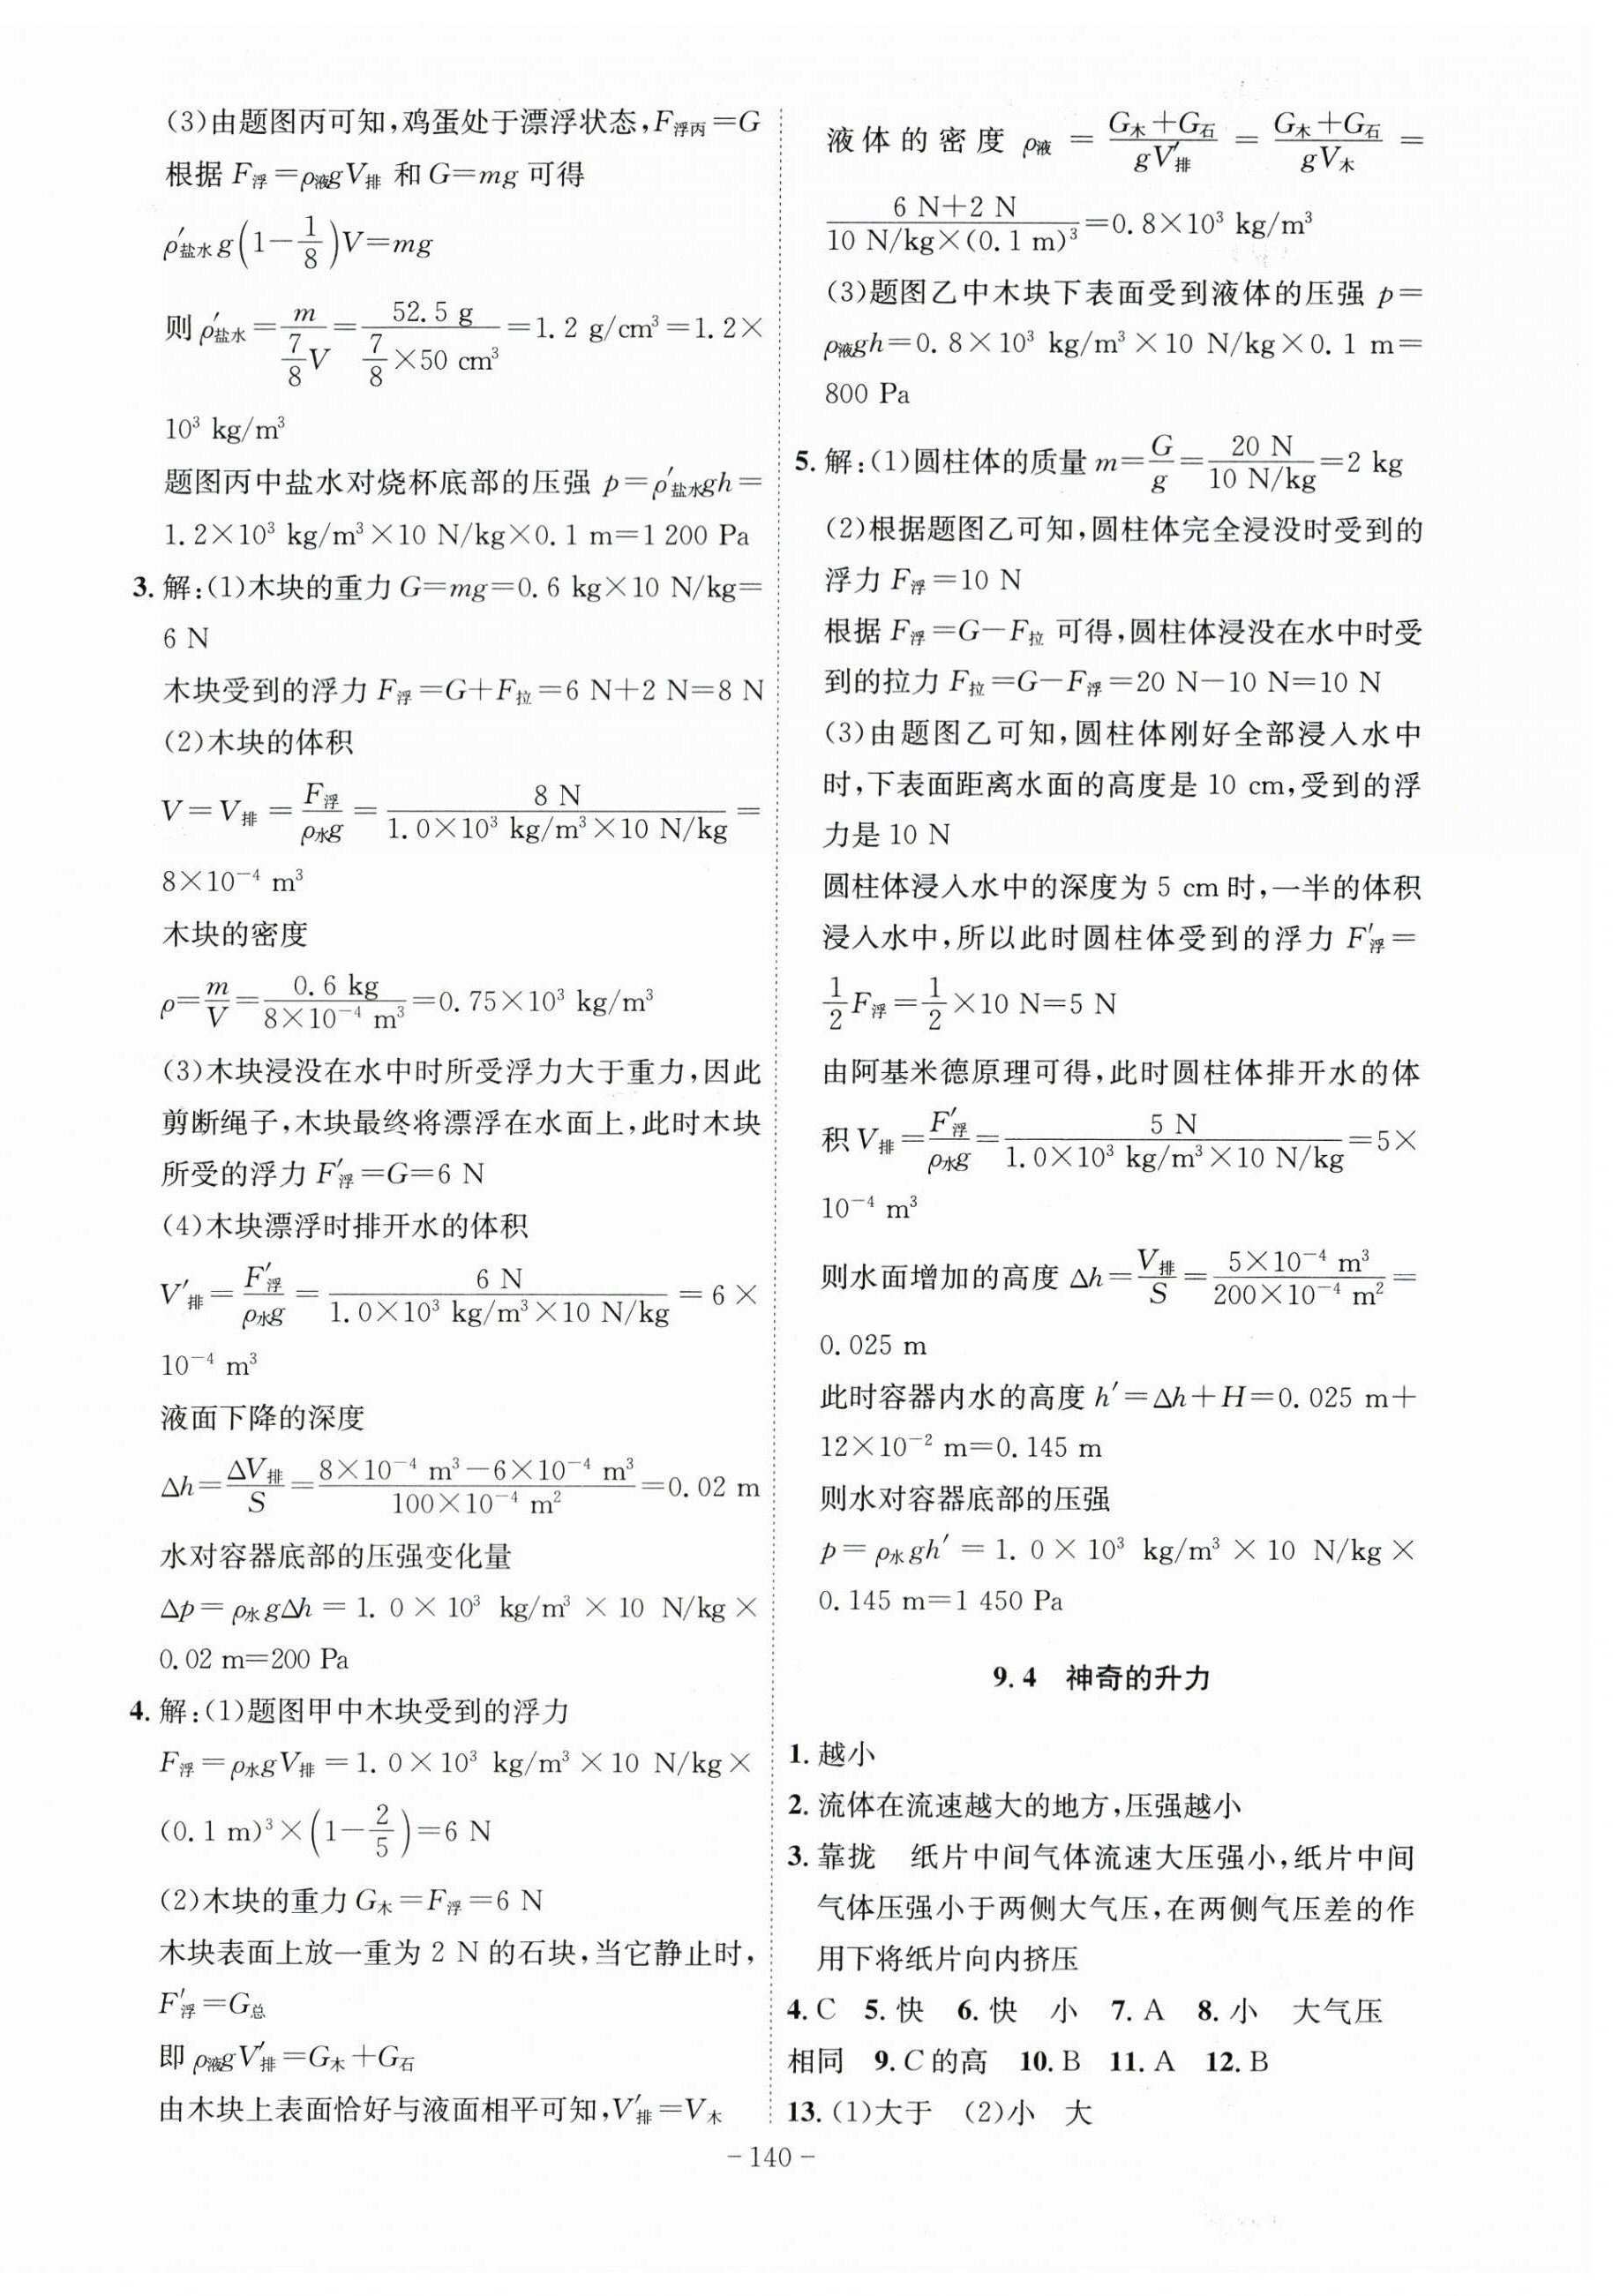 (3)由题图丙可知,鸡蛋处于漂浮状态,F浮丙=G
根据 F浮=ρ液gV排 和 G=mg 可得
ρ′盐水g(1−1/8)V=mg
则 ρ′盐水=m/(7/8 V)=52.5 g/(7/8×50 cm³)=1.2 g/cm³=1.2×
10³ kg/m³
题图丙中盐水对烧杯底部的压强 p=ρ′盐水gh=
1.2×10³ kg/m³×10 N/kg×0.1 m=1 200 Pa
3. 解:(1)木块的重力 G=mg=0.6 kg×10 N/kg=
6 N
木块受到的浮力 F浮=G+F拉=6 N+2 N=8 N
(2)木块的体积
V=V排=F浮/(ρ水g)=8 N/(1.0×10³ kg/m³×10 N/kg)=
8×10⁻⁴ m³
木块的密度
ρ=m/V=0.6 kg/(8×10⁻⁴ m³)=0.75×10³ kg/m³
(3)木块浸没在水中时所受浮力大于重力,因此
剪断绳子,木块最终将漂浮在水面上,此时木块
所受的浮力 F′浮=G=6 N
(4)木块漂浮时排开水的体积
V′排=F′浮/(ρ水g)=6 N/(1.0×10³ kg/m³×10 N/kg)=6×
10⁻⁴ m³
液面下降的深度
Δh=ΔV排/S=(8×10⁻⁴ m³−6×10⁻⁴ m³)/(100×10⁻⁴ m²)=0.02 m
水对容器底部的压强变化量
Δp=ρ水gΔh=1.0×10³ kg/m³×10 N/kg×
0.02 m=200 Pa
4. 解:(1)题图甲中木块受到的浮力
F浮=ρ水gV排=1.0×10³ kg/m³×10 N/kg×
(0.1 m)³×(1−2/5)=6 N
(2)木块的重力 G木=F浮=6 N
木块表面上放一重为 2 N 的石块,当它静止时,
F′浮=G总
即 ρ液gV′排=G木+G石
由木块上表面恰好与液面相平可知,V′排=V木
液体的密度 ρ液=(G木+G石)/(gV′排)=(G木+G石)/(gV木)=
(6 N+2 N)/(10 N/kg×(0.1 m)³)=0.8×10³ kg/m³
(3)题图乙中木块下表面受到液体的压强 p=
ρ液gh=0.8×10³ kg/m³×10 N/kg×0.1 m=
800 Pa
5. 解:(1)圆柱体的质量 m=G/g=20 N/(10 N/kg)=2 kg
(2)根据题图乙可知,圆柱体完全浸没时受到的
浮力 F浮=10 N
根据 F浮=G−F拉 可得,圆柱体浸没在水中时受
到的拉力 F拉=G−F浮=20 N−10 N=10 N
(3)由题图乙可知,圆柱体刚好全部浸入水中
时,下表面距离水面的高度是 10 cm,受到的浮
力是 10 N
圆柱体浸入水中的深度为 5 cm 时,一半的体积
浸入水中,所以此时圆柱体受到的浮力 F′浮=
1/2 F浮=1/2×10 N=5 N
由阿基米德原理可得,此时圆柱体排开水的体
积 V排=F′浮/(ρ水g)=5 N/(1.0×10³ kg/m³×10 N/kg)=5×
10⁻⁴ m³
则水面增加的高度 Δh=V排/S=5×10⁻⁴ m³/(200×10⁻⁴ m²)=
0.025 m
此时容器内水的高度 h′=Δh+H=0.025 m+
12×10⁻² m=0.145 m
则水对容器底部的压强
p=ρ水gh′=1.0×10³ kg/m³×10 N/kg×
0.145 m=1 450 Pa
9.4 神奇的升力
1. 越小
2. 流体在流速越大的地方,压强越小
3. 靠拢 纸片中间气体流速大压强小,纸片中间
气体压强小于两侧大气压,在两侧气压差的作
用下将纸片向内挤压
4. C 5. 快 6. 快 小 7. A 8. 小 大气压
相同 9. C 的高 10. B 11. A 12. B
13. (1)大于 (2)小 大
－140－